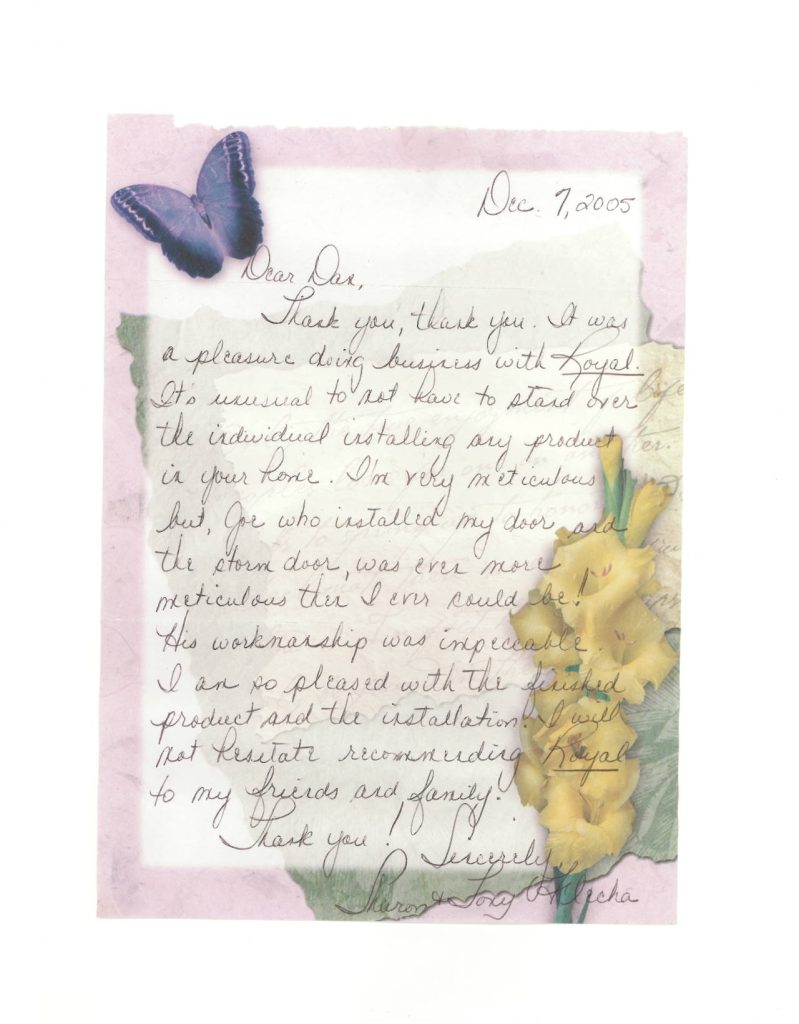 Dec. 7, 2005
Dear Dan,
Thank you, thank you. It was
a pleasure doing business with Royal.
It's unusual to not have to stand over
the individual installing any product
in your home. I'm very meticulous
but, Joe who installed my door and
the storm door, was even more
meticulous then I ever could be!
His workmanship was impeccable.
I am so pleased with the finished
product and the installation. I will
not hesitate recommending Royal
to my friends and family.
Thank you!
Sincerely,
Sharon & Tony